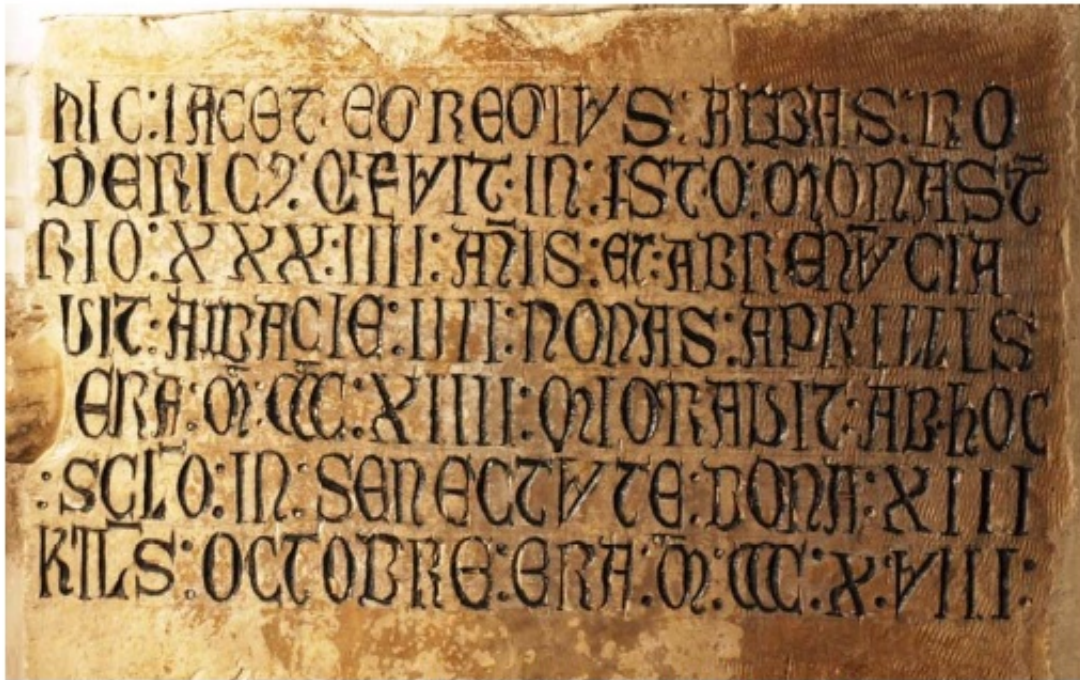 HIC:IACET EGREGIVS:ABBAS:RO
DERICꝰ:Q:FVIT:IN:ISTO:MONAST̄
RIO:XXX:IIII:AN̄IS:ET:ABRENV̄CIA
VIT:ABBACIE:IIII:NONAS:APRILLIS
ERA:M̄:CCC:XIIII:MIGRAVIT:AB:HOC
:SCL̄O:IN:SENECTVTE:BONA:XIII
KL̄S:OCTOBRE:ERA:M̄:CCC:X:VIII: